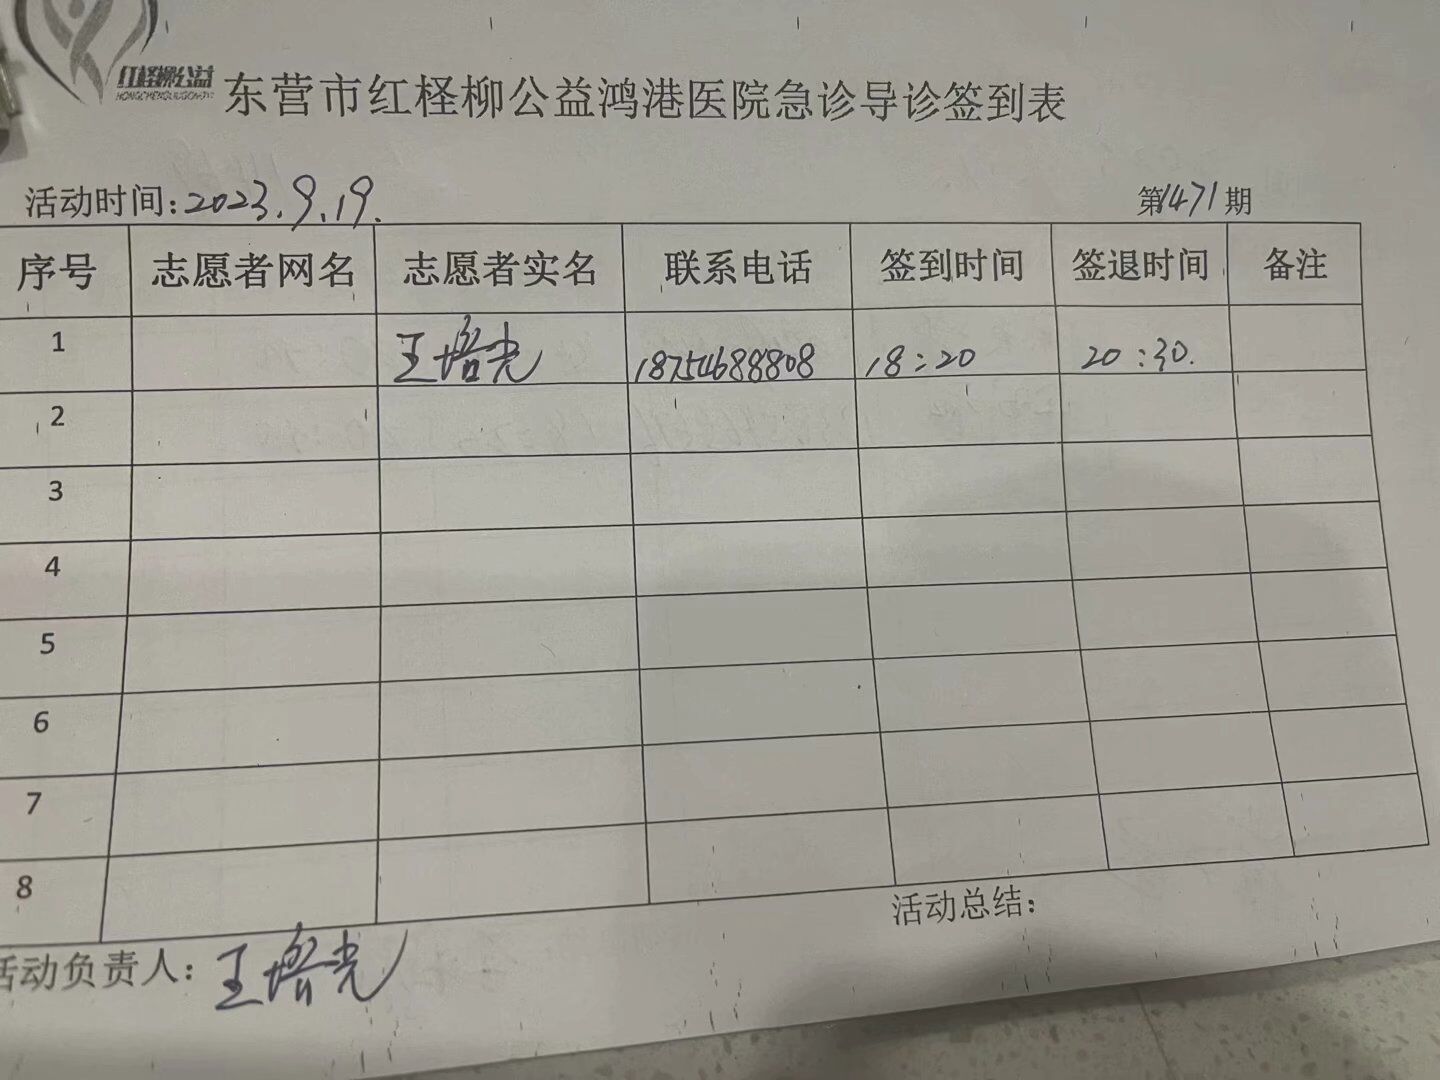 红柽柳公益
HONGCHENGLIUGONGYI
东营市红柽柳公益鸿港医院急诊导诊签到表
活动时间:2023.9.19.
第1471期
序号 志愿者网名 志愿者实名 联系电话 签到时间 签退时间 备注
1 王培光 18754688808 18:20 20:30.
2
3
4
5
6
7
8
活动总结:
活动负责人:王培光